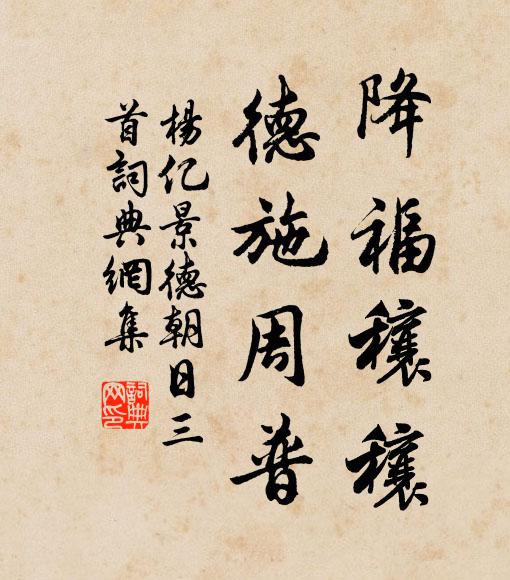 降福穰穰
德施周普
楊億景德朝日三
首詞典網集
詞典
网印